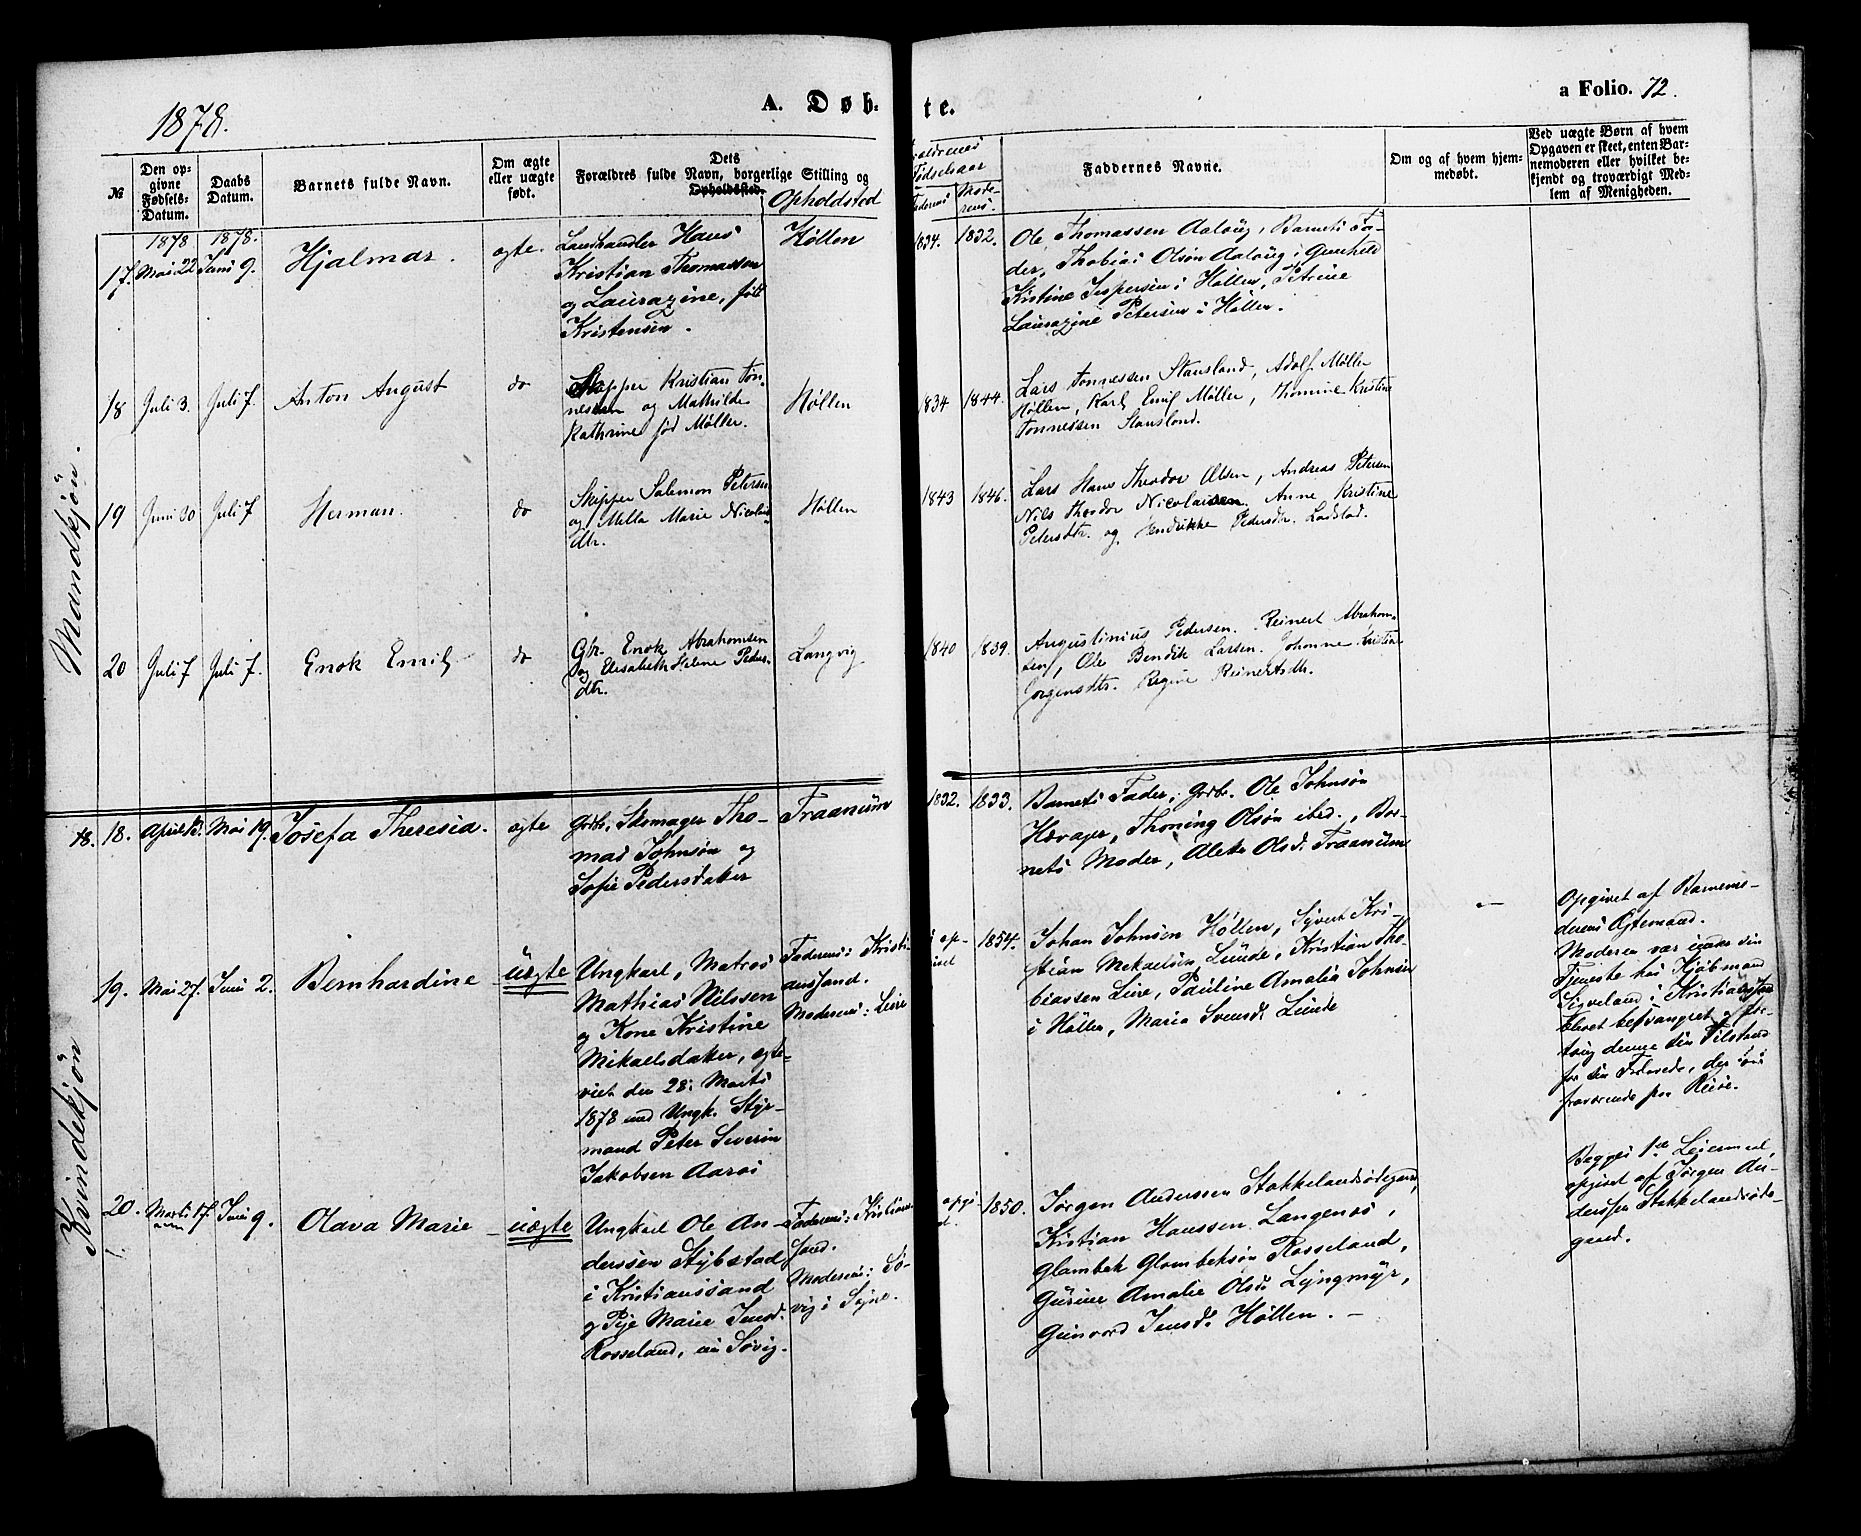 1878.
A. Døb-
te.
a Folio. 72.
№
Den op-
givne
Fødsels-
Datum.
Daabs
Datum.
Barnets fulde Navn.
Om ægte
eller uægte
født.
Dets
Forældres fulde Navn, borgerlige Stilling og
Opholdssted.
Opholdsted
Fødselsaar
Mode-
rens.
Faddernes Navne.
Om og af hvem hjem-
medøbt.
Ved uægte Børn af hvem
Opgaven er skeet, enten Bar-
nemoderen eller hvilket be-
kjendt og troværdigt Med-
lem af Menigheden.
Mandkjøn.
1878 1878.
17. Mai 22 Juni 9.
Hjalmar.
ægte.
Landhandler Hans
Kristian Thomassen
og Laurazine, født
Kristensen.
Høllen
1834. 1832.
Ole Thomassen Aalaug, Barnets Fa-
der, Thobias Olsøn Aalaug, Gunhild
Kistine Jespersen i Høllen, Petrine
Laurazine Petersen i Høllen.
18 Juli 3. Juli 7.
Anton August
do
Skipper Kristian Tøn-
nesen og Mathilde
Kathrine født Møller.
Høllen
1834 1844.
Lars Tønnessen Stausland, Adolf Møller
Høllen, Karl Emil Møller, Thomine Kristine
Tønnessen Stausland.
19 Juni 30 Juli 7
Herman.
do
Skipper Salemon Petersen
og Mella Marie Nicolais-
dtr.
Høllen
1843 1846.
Lars Hans Theodor Olsen, Andreas Petersen
Nils Theodor Nicolaisen, Anne Kristine
Petersdtr. og Hendrikke Pedersdtr. Ladstad.
20 Juli 7 Juli 7.
Enok Emil
do
Gbr. Enok Abrahamsen
og Elisabeth Helene Peders-
dtr.
Langvig
1840 1839.
Augustinius Pedersen. Reinert Abraham-
sen, Ole Bendik Larsen. Johanne Kristine
Jørgensdtr. Regine Reinertsdtr.
Kvindekjøn
18. 18. April 13. Mai 19.
Josefa Theresia.
ægte
Grdb. Skomager Tho-
mas Johnsøn og
Sofie Pedersdatter
Traanum
1832. 1833.
Barnets Fader, Grdb. Ole Johnsøn
Hærager, Thoning Olsøn ibed., Bar-
nets Moder, Alette Olsd. Traanum
19. Mai 27. Juni 2.
Bernhardine
uægte
Ungkarl, Matros
Mathias Nilssen
og Kone Kristine
Mikaelsdatter, ægte-
viet den 28. Marts
1878 med Ungk. Styr-
mand Peter Severin
Jakobsen Aaros
Faderens: Kristi-
anssand.
Moderens: Leire
1854.
Johan Johnsen Høllen, Syvert Kri-
stian Mikaelsen Lunde, Kristian Tho-
biassen Lire, Pauline Amalia Johnsen
i Høllen, Maria Svensd. Lunde
Opgivet af Barnemo-
derens Ægtemand.
Moderen var under sin
Tjeneste hos Kjøbmand
Sigveland i Kristianssand
blevet besvangret
denne sin Tilstand
for sin Forlovede, der
fraværende paa Reise.
20. Marts 17. Juni 9.
Olava Marie
uægte
Ungkarl Ole An-
derssen Stybstad
i Kristianssand
og Pije Marie Jensd.
Rosseland, nu Søvig.
Faderens: Kristians-
sand.
Moderens: Sø-
vig i Søgne.
1850.
Jørgen Anderssen Stokkelandsødegaard,
Kistian Hanssen Langenæs,
Glambek Glambeksøn Rosseland,
Gurine Amalie Olsd. Lyngmyr,
Gunvord Jensd. Høllen.
Begges 1ste Leiermaal,
opgivet af Jørgen An-
derssen Stokkelandsøde-
gaard.